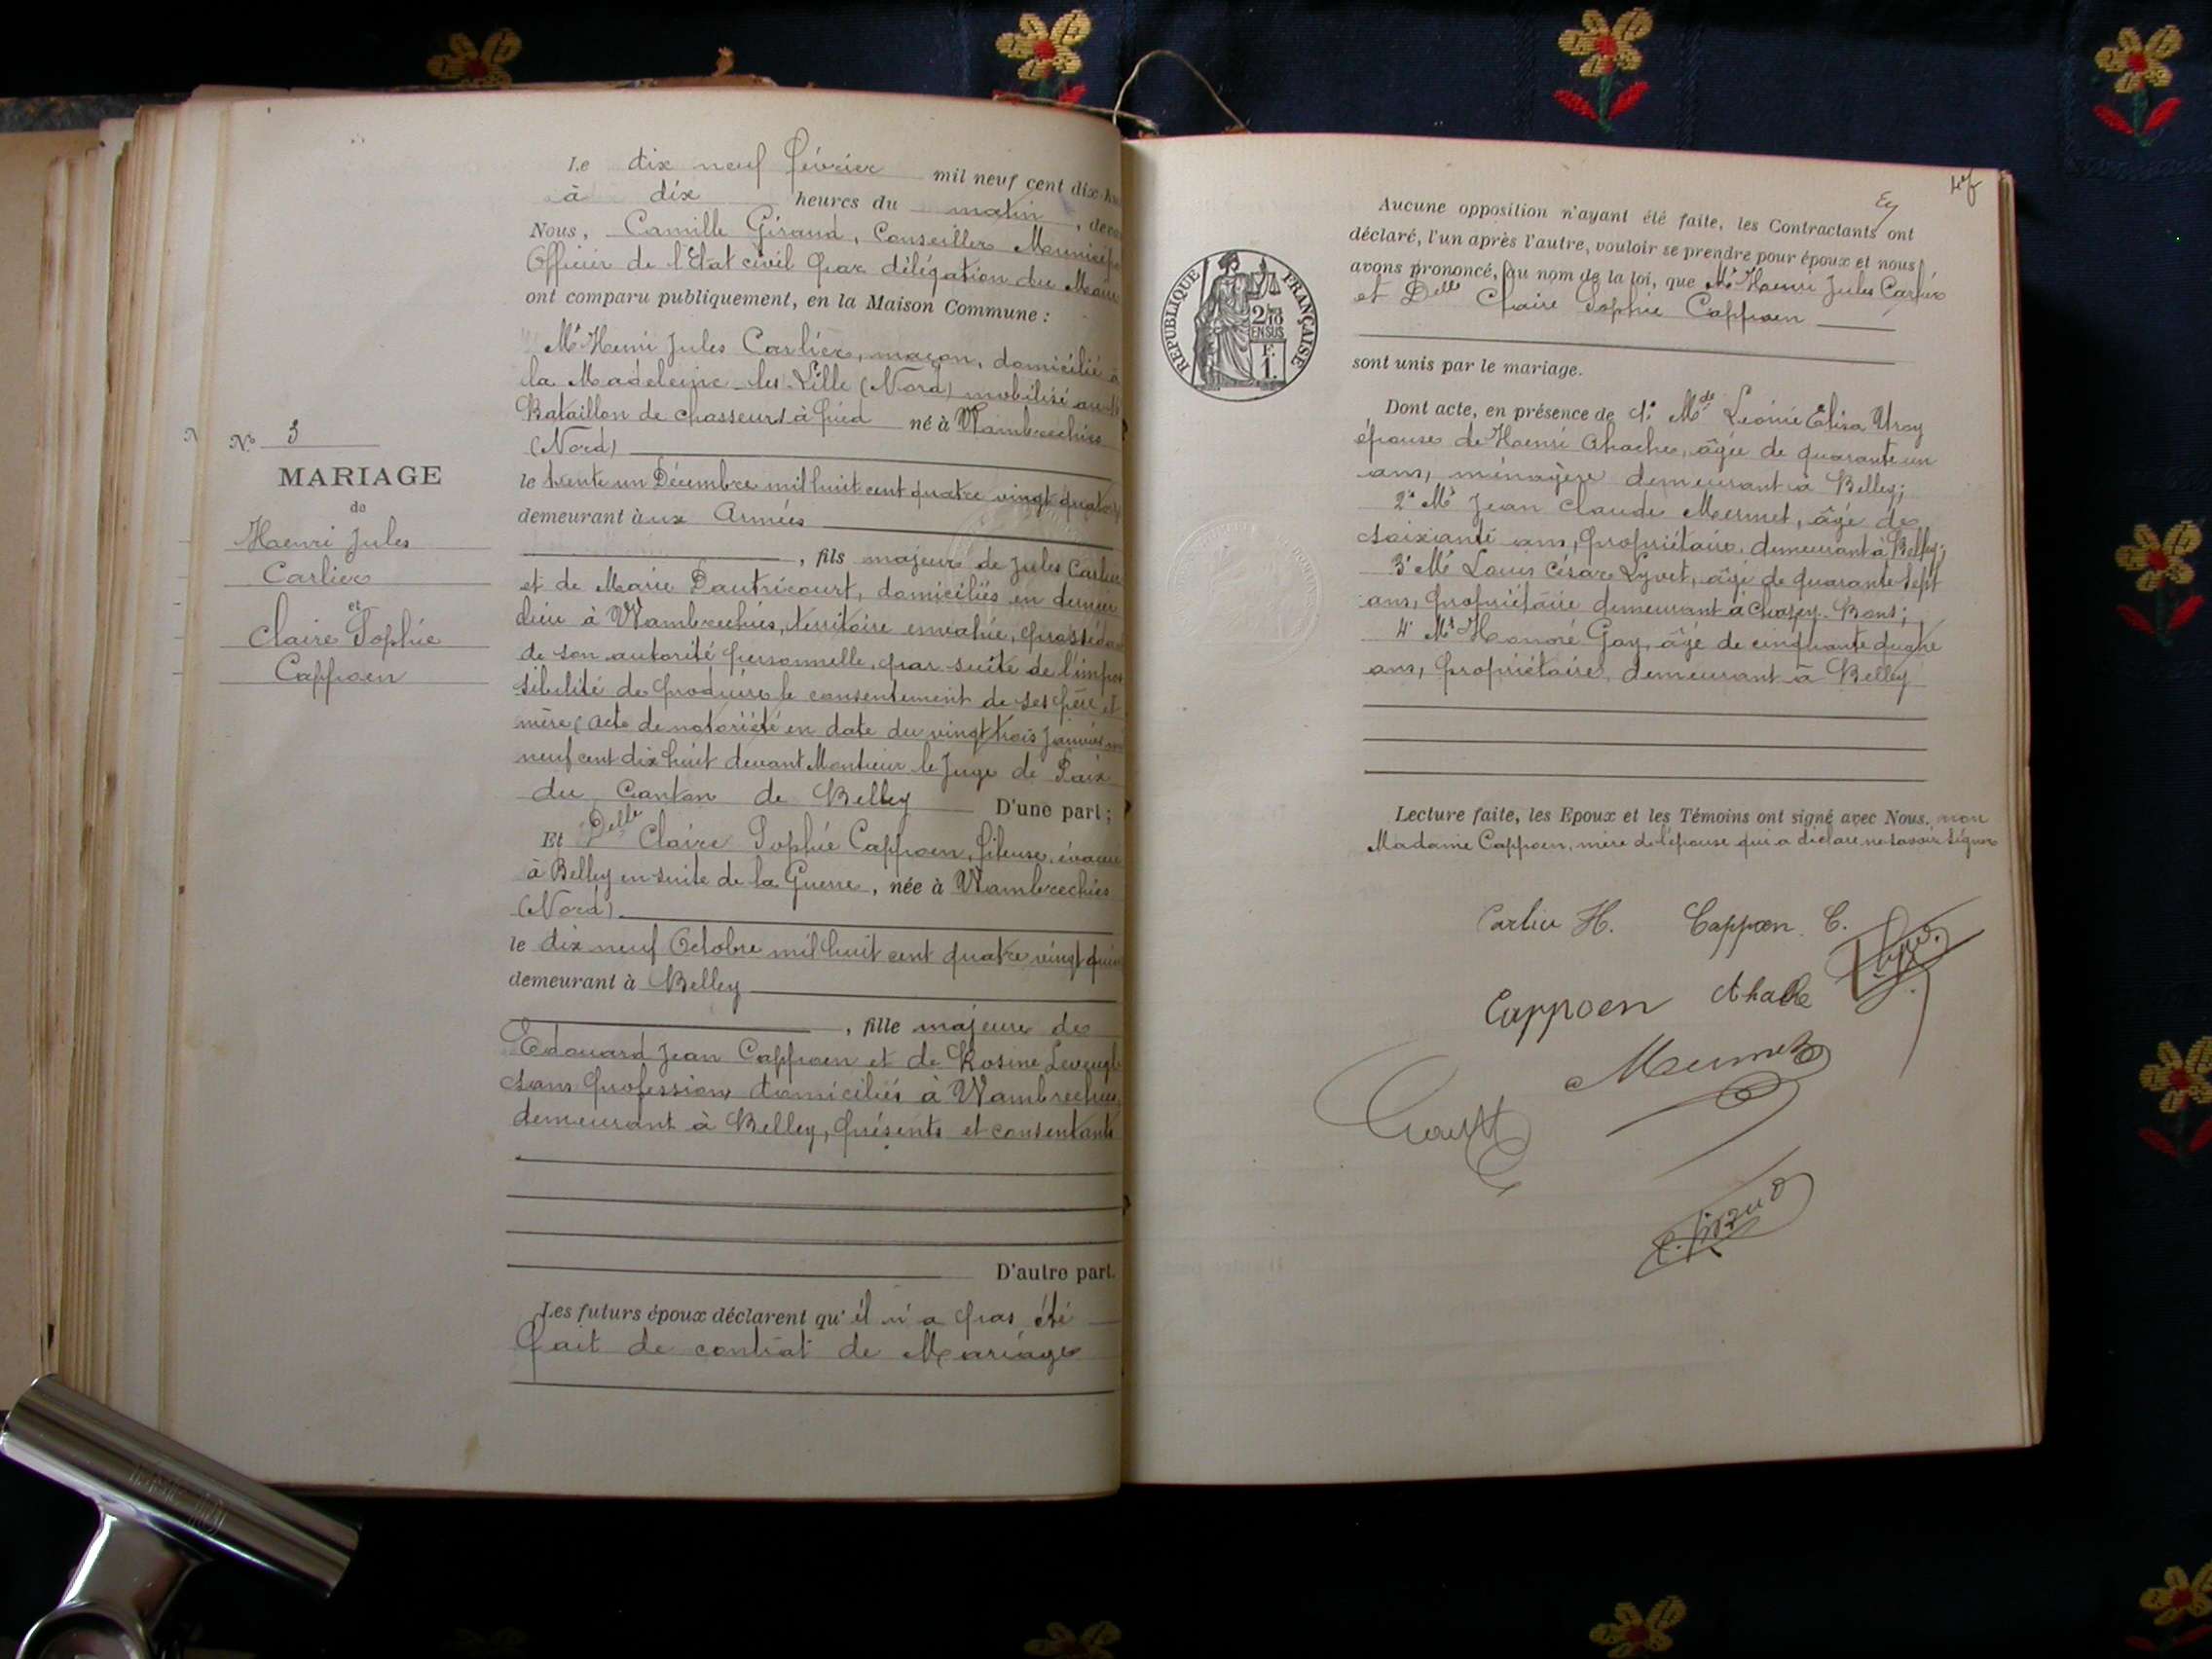 Le dix neuf février mil neuf cent dix-hu
à dix heures du matin, deva
Nous, Camille Giraud, Conseiller Municipa
Officier de l'Etat civil par délégation du Maire
ont comparu publiquement, en la Maison Commune :
Mr Henri Jules Carlier, maçon, domicilié à
la Madeleine-les-Lille (Nord) mobilisé au
Bataillon de chasseurs à pied né à Wambrechies
(Nord)
le trente un Décembre mil huit cent quatre vingt quatorz
demeurant aux Armées
, fils majeur de Jules Carlier
et de Marie Dautricourt, domiciliés en dernier
lieu à Wambrechies, territoire envahie, procédan
de son autorité personnelle, par suite de l'impos
sibilité de produire le consentement de ses père et
mère, acte de notoriété en date du vingt trois Janvier mil
neuf cent dix huit devant Monsieur le Juge de Paix
du Canton de Belley D'une part ;
Et Delle Claire Sophie Cappoen, fileuse, évacuée
à Belley en suite de la Guerre, née à Wambrechies
(Nord)
le dix neuf Octobre mil huit cent quatre vingt quin
demeurant à Belley
, fille majeure de
Edouard Jean Cappoen et de Rosine Leveugle
sans profession domiciliés à Wambrechies,
demeurant à Belley, présents et consentants
D'autre part.
Les futurs époux déclarent qu'il n'a pas été
fait de contrat de Mariage
N° 3
MARIAGE
de
Henri Jules
Carlier
et
Claire Sophie
Cappoen
Aucune opposition n'ayant été faite, les Contractants ont
déclaré, l'un après l'autre, vouloir se prendre pour époux et nous
avons prononcé, au nom de la loi, que Mr Henri Jules Carlier
et Delle Claire Sophie Cappoen
sont unis par le mariage.
RÉPUBLIQUE FRANÇAISE
2/10
EN SUS
F.
1.
Dont acte, en présence de 1° Mde Léonie Elisa Uroy
épouse de Henri Ahache, âgée de quarante un
ans, ménagère demeurant à Belley;
2° Mr Jean Claude Mermet, âgé de
soixante ans, propriétaire, demeurant à Belley;
3° Mr Louis César Lyvet, âgé de quarante sept
ans, propriétaire demeurant à Chazey-Bons;
4° Mr Honoré Goy, âgé de cinquante
ans, propriétaire, demeurant à Belley
Lecture faite, les Epoux et les Témoins ont signé avec Nous. non
Madame Cappoen, mère de l'épouse qui a déclaré ne savoir signer
Carlier H. Cappoen C.
Cappoen Ahache
Mermet
C. Giraud